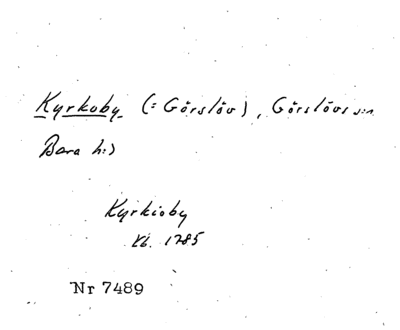 Kyrkoby (= Görslöv), Görslövs s:n
Bara h:d
Kyrkioby
Kb. 1785
Nr 7489